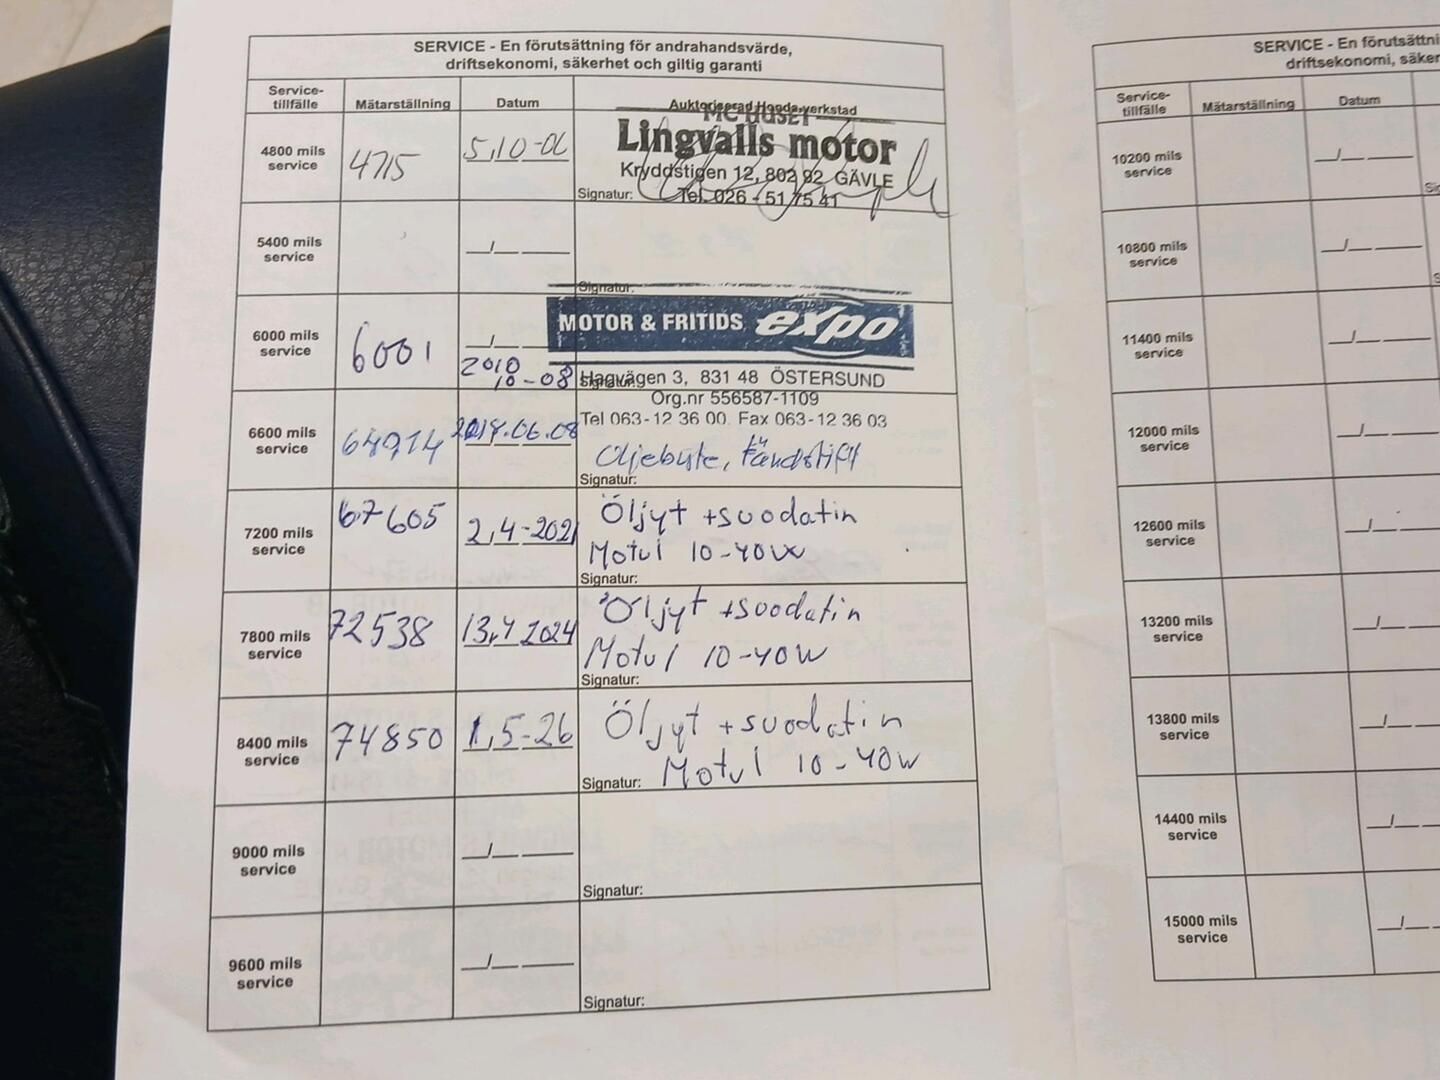 SERVICE - En förutsättning för andrahandsvärde,
driftsekonomi, säkerhet och giltig garanti
Service-
tillfälle
Mätarställning
Datum
Auktoriserad Honda-verkstad
4800 mils
service
4715
5,10-06
MC HUSET
Lingvalls motor
Kryddstigen 12, 802 92 GÄVLE
Tel. 026 - 51 75 41
Signatur:
5400 mils
service
Signatur:
6000 mils
service
6001
2010
10-08
MOTOR & FRITIDS expo
Hagvägen 3, 831 48 ÖSTERSUND
Org.nr 556587-1109
Tel 063-12 36 00. Fax 063-12 36 03
6600 mils
service
64914
2014.06.08
Oljebyte, tändstift
Signatur:
7200 mils
service
67605
2,4-2021
Öljyt + suodatin
Motul 10-40W
Signatur:
7800 mils
service
72538
13,4 2024
Öljyt + suodatin
Motul 10-40W
Signatur:
8400 mils
service
74850
1,5-26
Öljyt + suodatin
Signatur: Motul 10-40W
9000 mils
service
Signatur:
9600 mils
service
Signatur:
SERVICE - En förutsättni
driftsekonomi, säker
Service-
tillfälle
Mätarställning
Datum
10200 mils
service
10800 mils
service
11400 mils
service
12000 mils
service
12600 mils
service
13200 mils
service
13800 mils
service
14400 mils
service
15000 mils
service